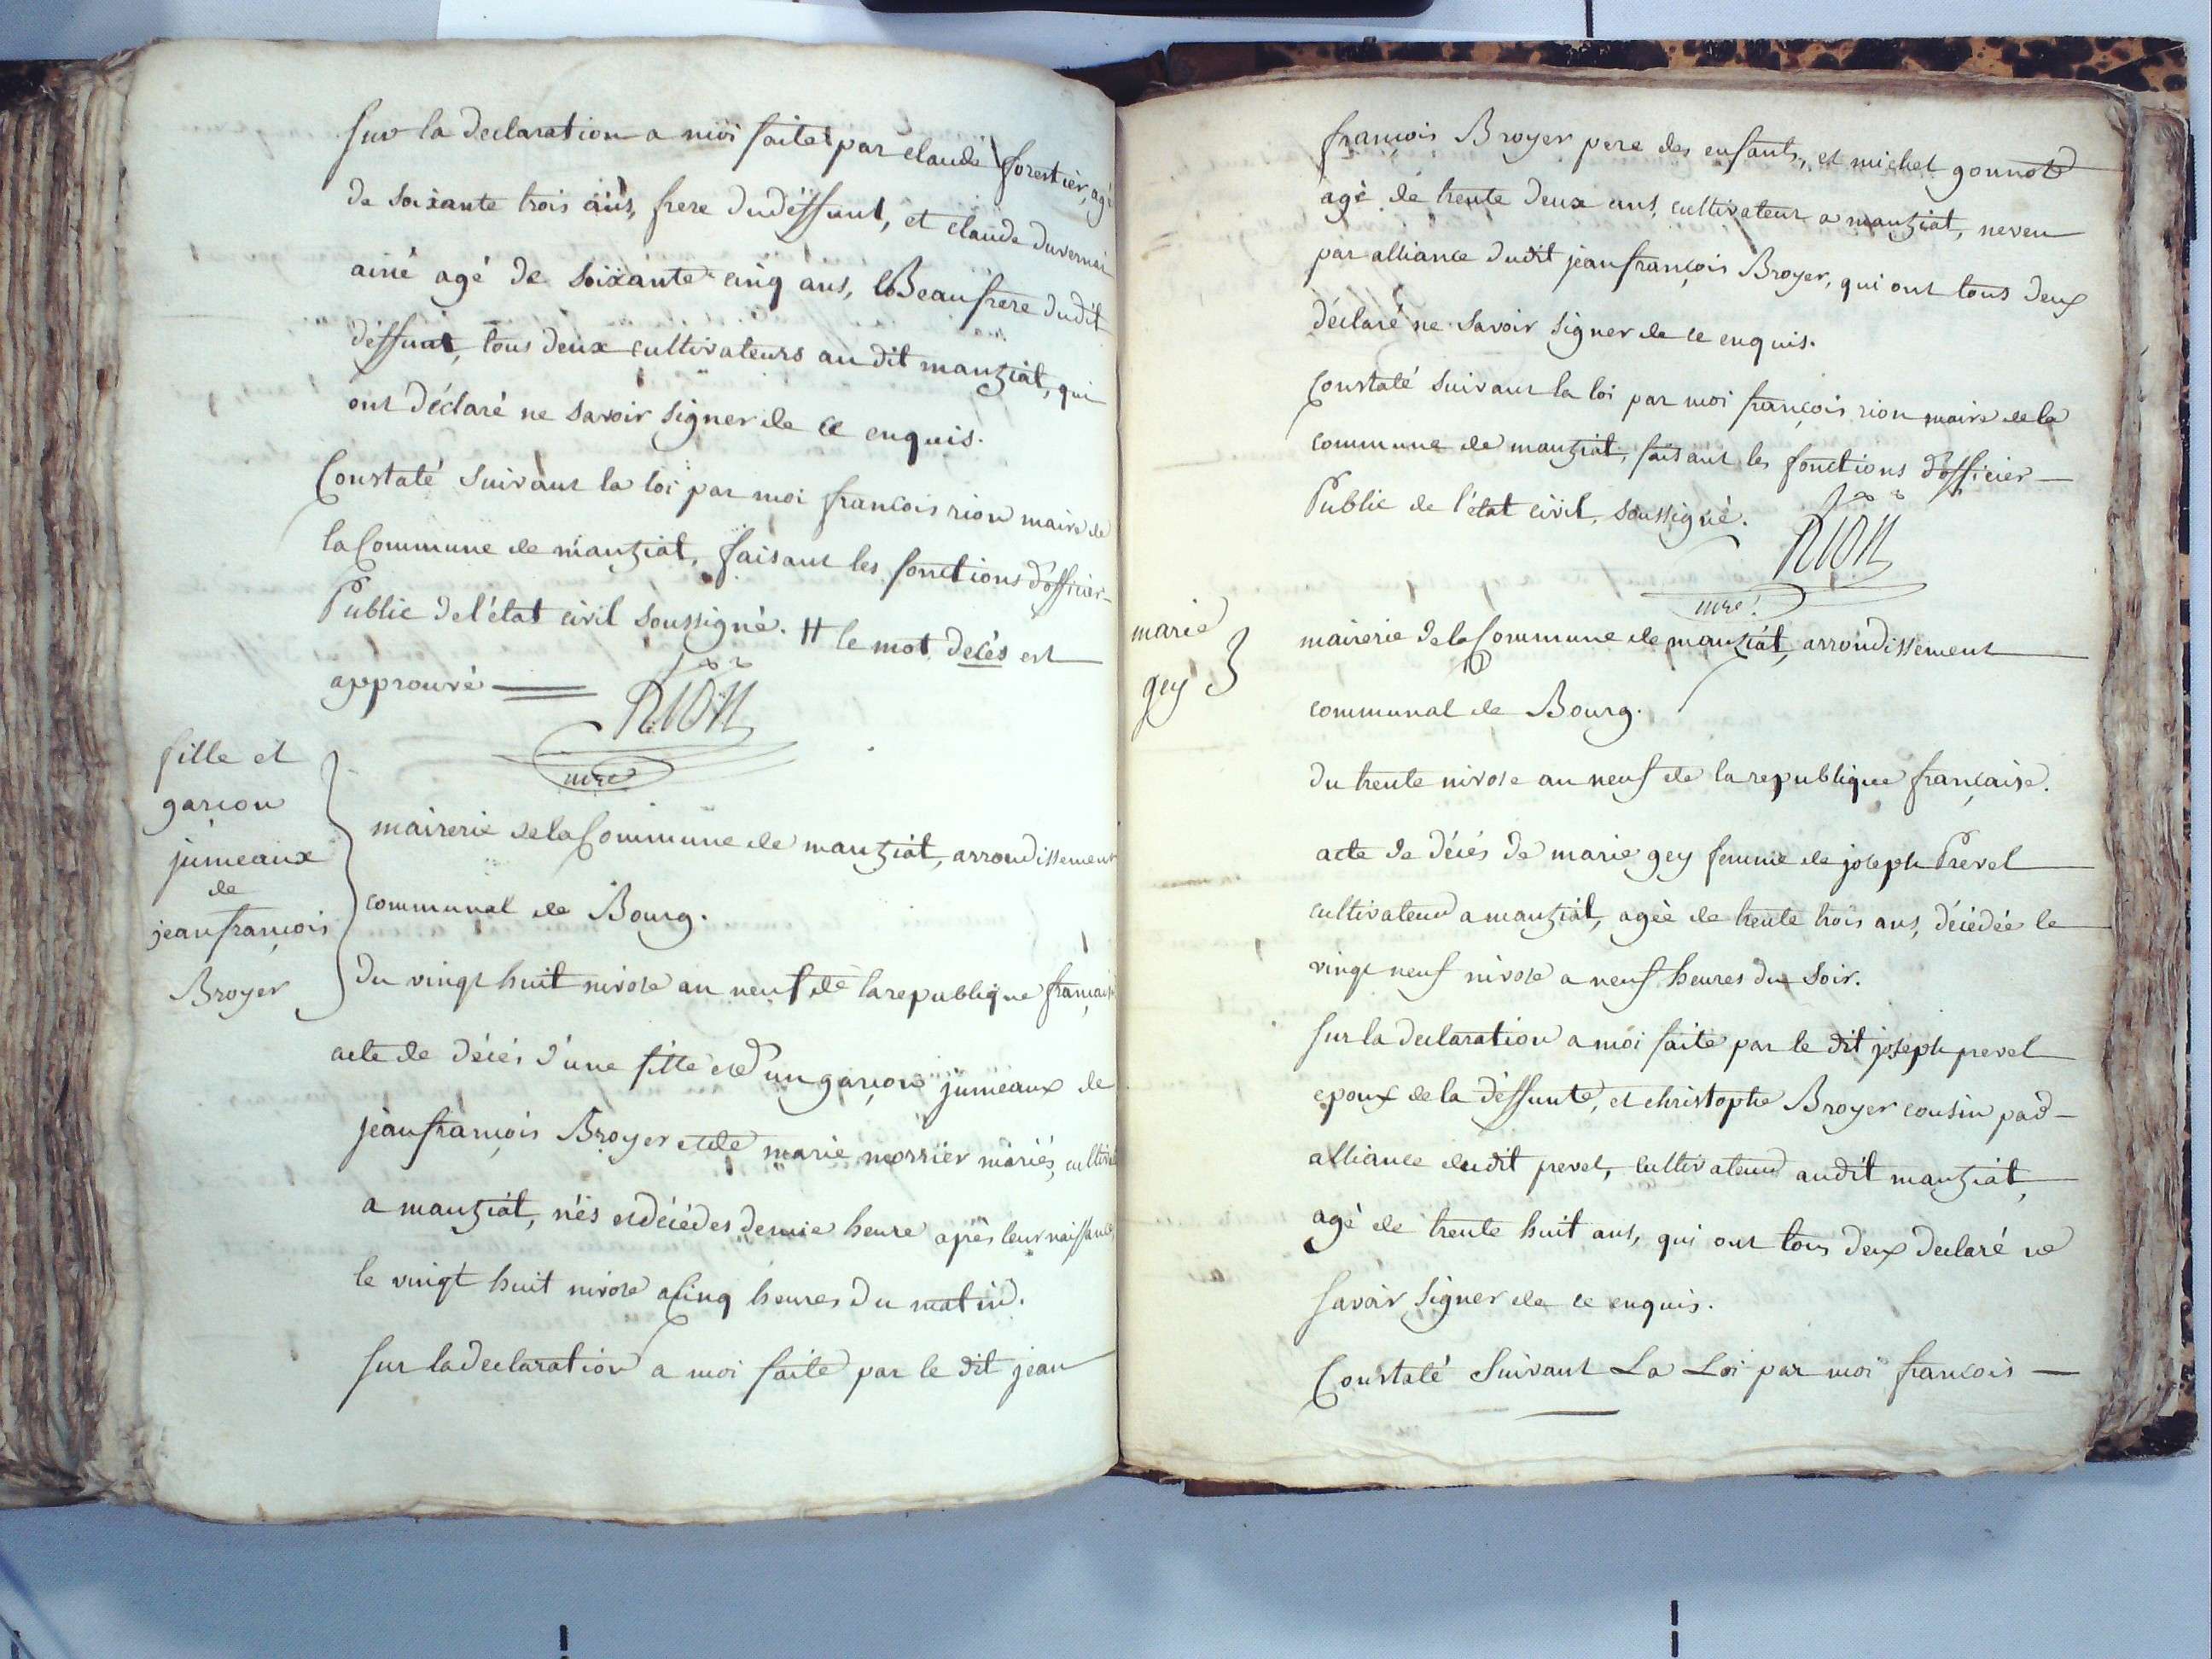 Sur la declaration a moi faite par claude forestier, agé
de soixante trois ans, frere du déffunt, et claude duvernai
ainé agé de soixante cinq ans, Beaufrere dudit
déffunt, tous deux cultivateurs au dit manziat, qui
ont déclaré ne savoir signer de ce enquis.
Constaté suivant la loi par moi francois rion maire de
la Commune de manziat, faisant les fonctions d'officier
Public de l'état civil soussigné. # le mot decés est
approuvé
RION
mre
fille et
garcon
jumeaux
de
jeanfrançois
Broyer
mairerie de la Commune de manziat, arrondissement
communal de Bourg.
du vingt huit nivose an neuf de la republique francaise
acte de décés d'une fille et d'un garçon jumeaux de
jeanfrançois Broyer et de marie morrier mariés,
a manziat, nés et décédes demie heure après leur naissance,
le vingt huit nivose a Cinq heures du matin.
Sur la declaration a moi faite par le dit jean
françois Broyer pere des enfants, et michel gonnod
agé de trente deux ans, cultivateur a manziat, neveu
par alliance dudit jeanfrançois Broyer, qui ont tous deux
déclaré ne savoir signer de ce enquis.
Constaté suivant la loi par moi françois rion maire de la
commune de manziat, faisant les fonctions d'officier
Public de l'état civil, soussigné.
RION
mre
marie
gey
mairerie de la Commune de manziat, arrondissement
communal de Bourg.
du trente nivose an neuf de la republique française.
acte de décés de marie gey femme de joseph Prevel
cultivateur a manziat, agée de trente trois ans, décédée le
vingt neuf nivose a neuf heures du soir.
Sur la declaration a moi faite par le dit joseph prevel
epoux de la déffunte, et christophe Broyer cousin par
alliance dudit prevel, cultivateur audit manziat,
agé de trente huit ans, qui ont tous deux declaré ne
savoir signer de ce enquis.
Constaté Suivant La Loi par moi francois